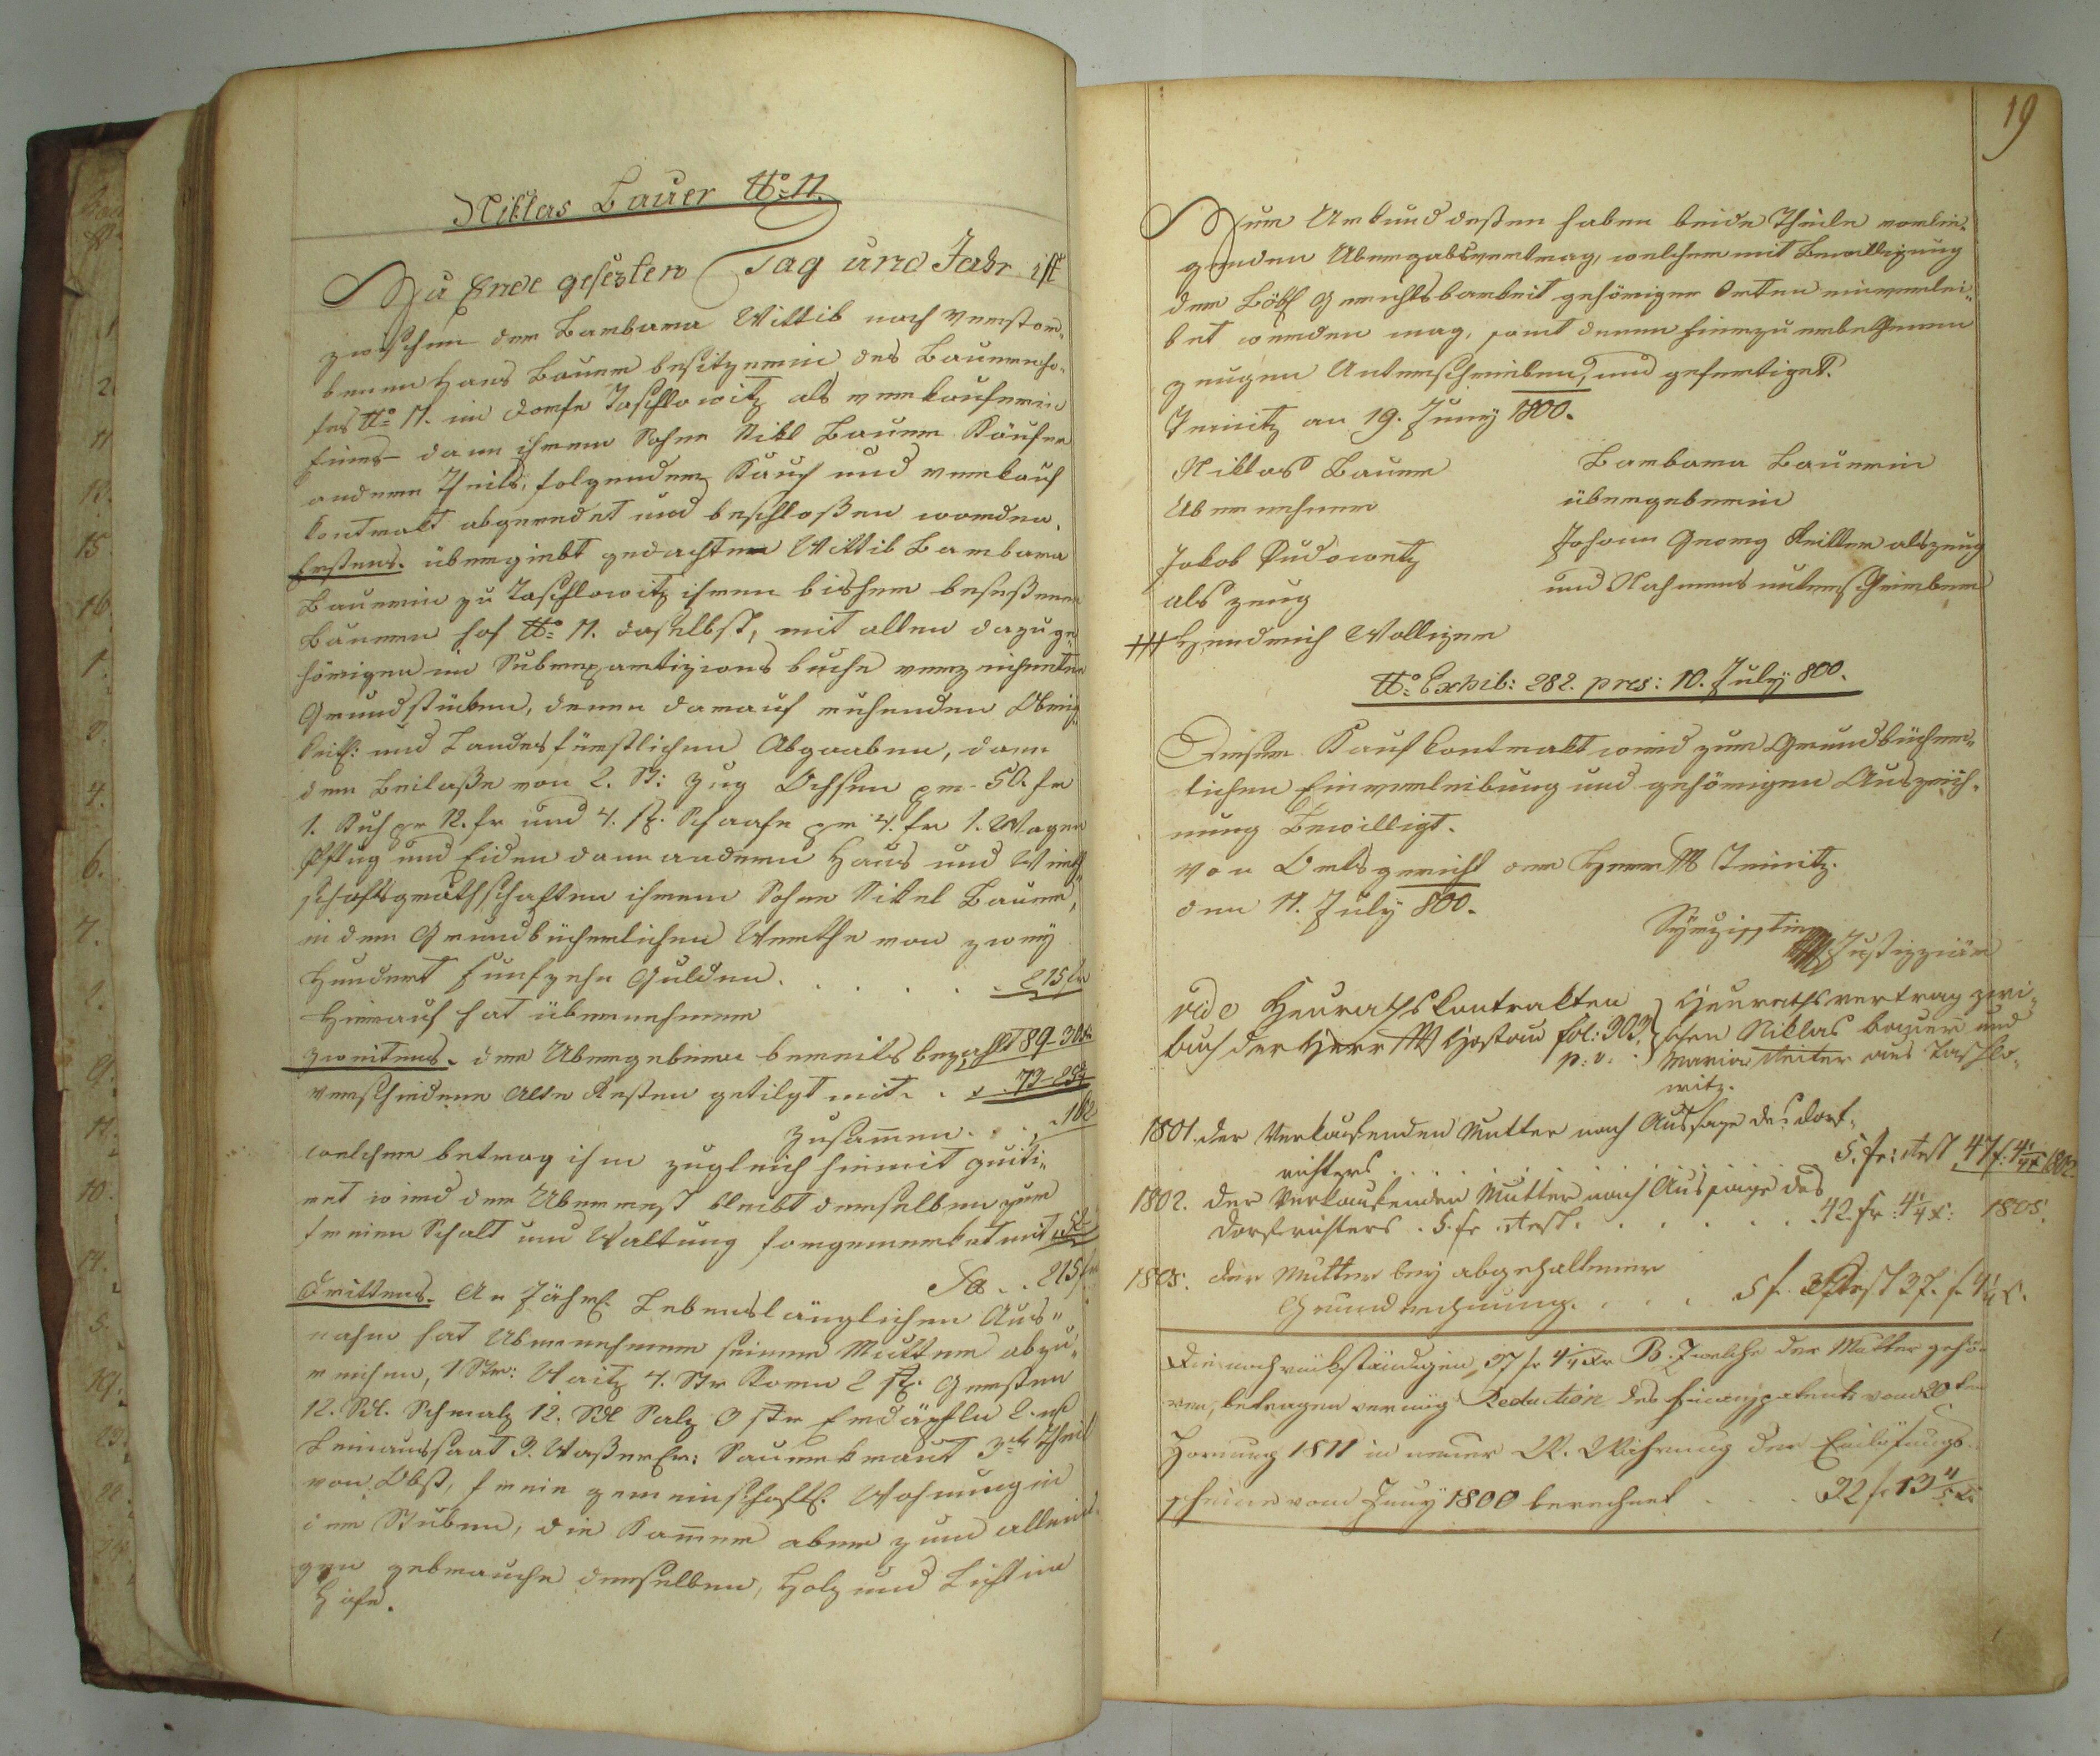 Niklas Bauer No: 11.
Zu Ende gesezten Tag und Jahr ist
zwischen der Barbara Wittib nach verstor-
benen Hans Bauer besitzerin des Bauernho-
fes No: 11. im Dorfe Taschlowitz als verkauferin
eines dann ihrem Sohne Nikl Bauer Käufer
andern Theils, folgender Kauf und verkauf
Kontrakt abgeredet und beschloßen worden.
Erstens. übergiebt gedachte Wittib Barbara
Bauerin zu Taschlowitz ihren bisher beseßenen
Bauern hof No: 11. daselbst, mit allen dazu ge
hörigen im Subrepartizions buche verzeichneten
Grundstüken, denen darauf ruhenden Obrig
keitl: und Landesfürstlichen Abgaaben, dann
dem Beilaße von 2. St: Zug Ochsen per 50. fr
1. Kuh pr 12. fr und 4. St. Schaafe pr 4. fr 1. Wagen
Pflug und Eiden dann andern Haus und Wirth
schaftsgeräthschaften ihrem Sohne Nikel Bauer,
in dem Grundbücherlichen Werthe von zwey
Hundert funfzehn Gulden. . . . . . 215 fr
Hierauf hat übernehmer
Zweitens. der Übergeberin bereits bezahlt 89 - 30
verschiedene Alte Resten getilgt mit . . 73 -
Zusam̄en . . . 162
welcher betrag ihm zugleich hiemit quiti-
ret wird der Überrest bleibt derselben zur
freien Schalt und Waltung forgemerket mit
Sa . . 215 f
Drittens. An Jährl. Lebenslänglichen Aus-
nahm hat Übernehmer seiner Mutter abzu-
reichen, 1 Str: Waitz 4. Str Korn 2 St. Gersten
12. Sl. Schmalz 12. Sl Salz 3 str Erdäpfln 2.
Leinaussaat 3. Waßer Sauerkraut 3ten Theil
von Obst, freie gemeinschaftl. Wohnung in
der Stuben, die Kam̄er aber zum alleini-
gen gebrauche derselben, Holz und Licht im
Hofe.
19
Zur Urkund deßen haben beide Theile vorlie-
genden Übergabsvertrag, welcher mit Bewilligung
der Löbl Gerichtsbarkeit gehöriger Orten einverlei-
bet werden mag, samt denen hierzu erbethenen
zeugen Unterschrieben, und gefertiget.
Teinitz am 19. Juny 1800.
Niklas Bauer
Übernehmer
Barbara Bauerin
übergeberin
Jakob
als zeug
Johann Georg Reitter als zeug
und Nahmens unterschreiber
+++ Hendrich Wolliger
No: Exhib: 282. pres: 10. July 800.
Dieser Kauf Kontrakt wird zur Grundbücher-
lichen Einverleibung und gehörigen Auszeich-
nung Bewilligt.
Von Ortsgericht der Herrsch Teinitz.
den 11. July 800.
Justizziär
vide Heurathskontrakten
buch der Herrsch Hostau fol: 303.
p: v.
Heurathsvertrag zwi-
schen Niklas bauer und
Maria Reiter aus Taschlo-
witz.
1801. der Verkaufenden Mutter nach Aussage des dorf-
richters . . . . 5. fr: Rest 47 f. 4 1/4 x 1802
1802. der Verkaufenden Mutter nach Aussage des
dorfrichters . 5. fr Rest . . . . . . 42. fr: 4 1/4 x: 1805.
1805. der Mutter bey abgehaltener
Grundrechnung . . . . 5 f. Rest 37. f. 4 1/4 x.
Die noch rückständigen 37 fr 4 1/4 xr B.Z welche der Mutter gehö-
ren, betragen vermög Reduction des Finanzpatents vom 20ten
Hornung 1811 in neuer W. Währung der Einlösungs-
scheine vom Juny 1800 berechnet . . . . 32 fr 13 4/5 x.